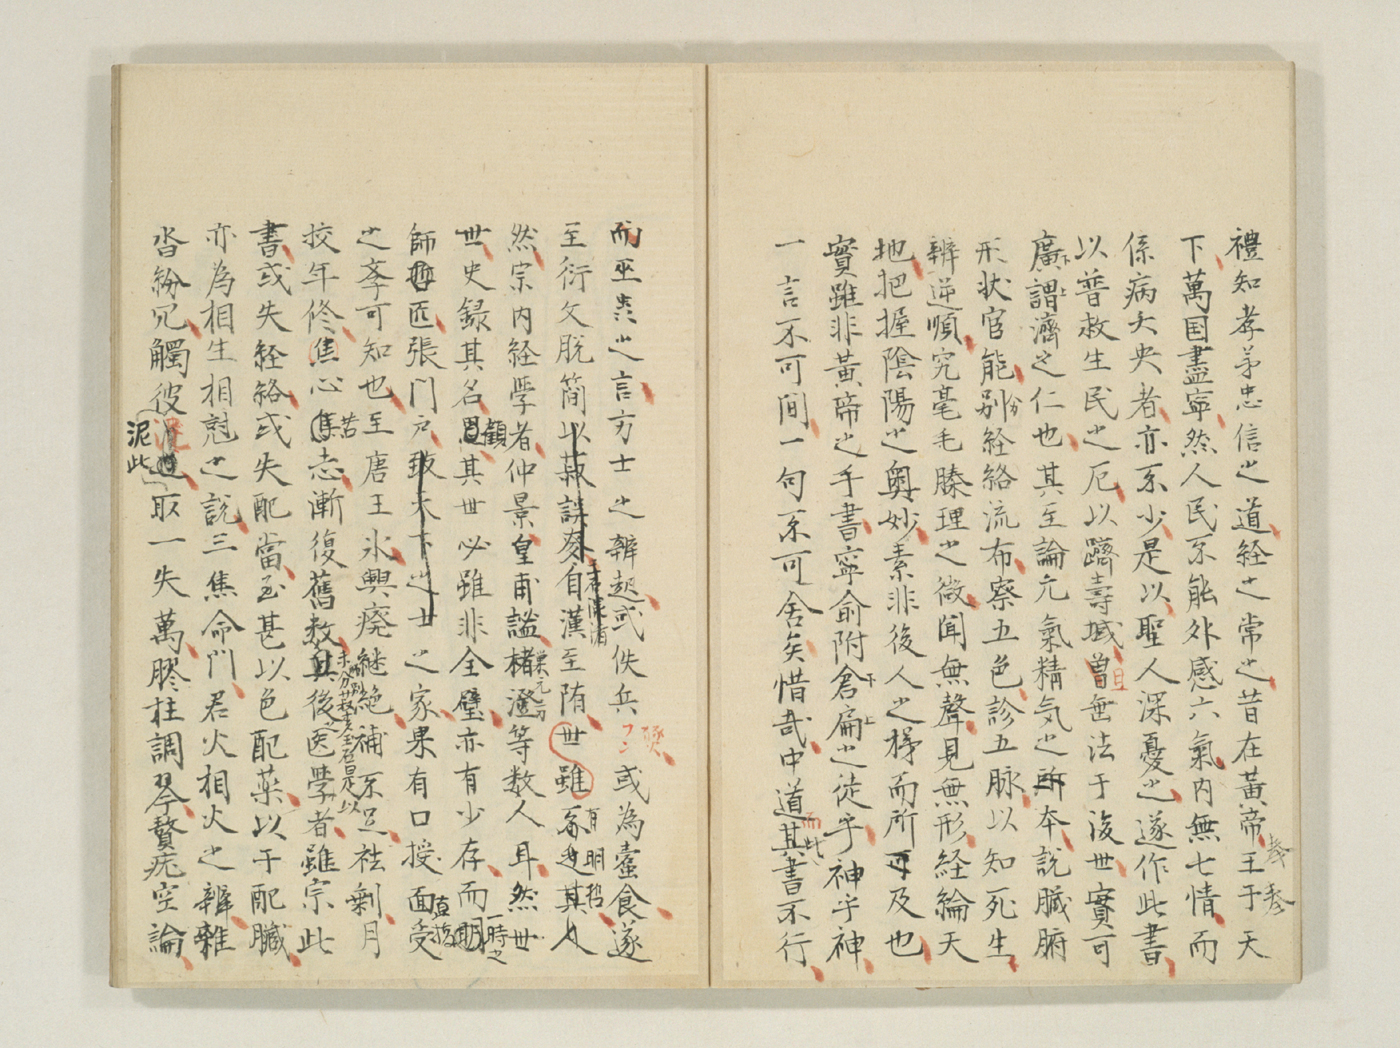 禮知孝弟忠信之道経之常也昔在黃帝王于天
下萬国盡寧然人民不能外感六氣内無七情而
係病夭央者亦不少是以聖人深憂之遂作此書
以普救生民之厄以躋壽域曽垂法于後世實可
廣謂濟之仁也其至論元氣精気之所本説臓腑
形状官能別経絡流布察五色診五脉以知死生
辨逆順究毫毛腠理之微聞無聲見無形経綸天
地把握陰陽之奥妙素非後人之擇而所可及也
實雖非黃帝之手書寧俞附倉扁之徒乎神乎神
一言不可間一句不可舍矣惜哉中道其書不行
而巫祟之言方士之辨起或佚兵或為蠹食遂
至衍文脱簡以叔誤麥自漢至隋世雖其人
然宗内経學者仲景皇甫謐褚澄等数人耳然世
世史録其名其世必雖非全璧亦有少存而
師匠張門戸致天下之士之家果有口授面受
之孝可知也至唐王氷興癈継絶補不足袪剰月
挍年修焦心志漸復舊数其後医學者雖宗此
書或失経絡或失配當至甚以色配薬以于配臓
亦為相生相尅之説三焦命門君火相火之辨雜
沓紛冗觸彼取一失萬膠柱調琴贅疣空論
泥此